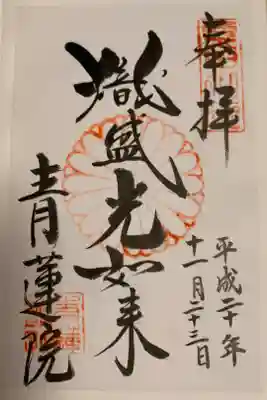 奉拝
平成二十年
十一月二十三日
熾盛光如来
青蓮院